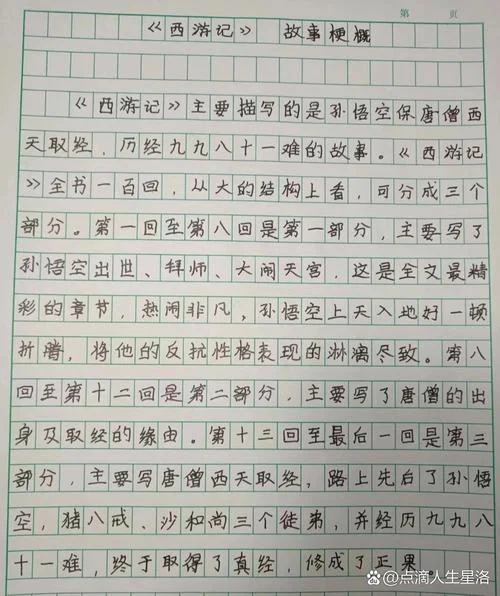 第 页
《西游记》 故事梗概
《西游记》主要描写的是孙悟空保唐僧西
天取经，历经九九八十一难的故事。《西游记
》全书一百回，从大的结构上看，可分成三个
部分。第一回至第八回是第一部分，主要写了
孙悟空出世、拜师、大闹天宫，这是全文最精
彩的章节，热闹非凡，孙悟空上天入地好一顿
折腾，将他的反抗性格表现的淋漓尽致。第八
回至第十二回是第二部分，主要写了唐僧的出
身及取经的缘由。第十三回至最后一回是第三
部分，主要写唐僧西天取经，路上先后了孙悟
空，猪八戒、沙和尚三个徒弟，并经历九九八
十一难，终于取得了真经，修成了正果。
点滴人生星洛